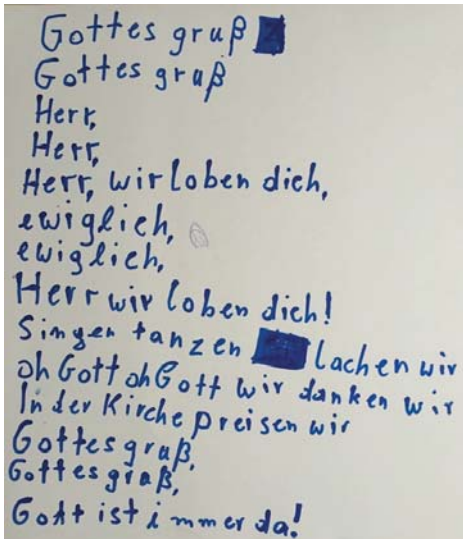 Gottes gruß
Gottes gruß
Herr,
Herr,
Herr, wir loben dich,
ewiglich,
ewiglich,
Herr wir loben dich!
Singen tanzen lachen wir
oh Gott oh Gott wir danken wir
In der Kirche preisen wir
Gottesgruß,
Gottesgruß,
Gott ist immer da!